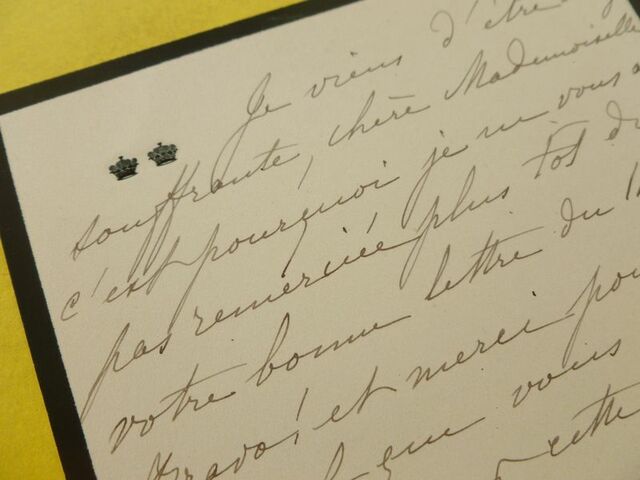 Je viens d'être
souffrante, chère Mademoiselle
c'est pourquoi je ne vous a
pas remerciée plus tôt du
votre bonne lettre du 1
et merci pou
que vous
cette